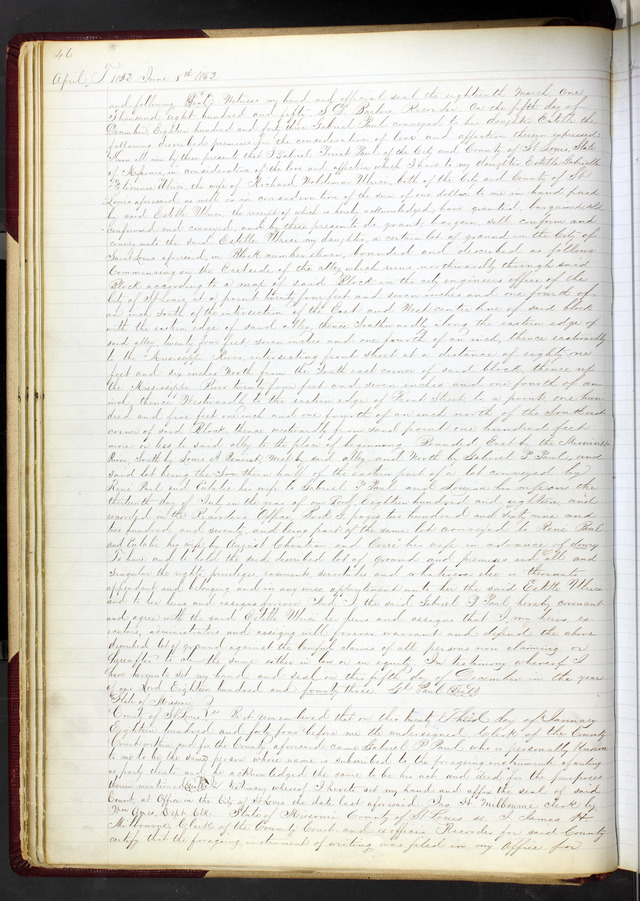 46
April T 1852 June 8th 1852
and following Witness my hand and official seal the eighteenth March One
Thousand eight hundred and fifty S D Barlow Recorder On the fifth day of
December Eighteen hundred and forty three Gabriel Paul conveyed to his daughter Estelle the
following described premises for the consideration of love and affection therein expressed;
Know all men by these presents that I Gabriel Paul of the City and County of St Louis, State
of Missouri, in consideration of the love and affection which I have to my daughter Estelle
the wife of Richard Waldemar Ulrici, both of the City and County of St
Louis aforesaid as well as in consideration of the sum of one dollar to me in hand paid
by said Estelle Ulrici the receipt of which is hereby acknowledged, have granted, bargained, sold
confirmed and conveyed, and by these presents do grant, bargain, sell, confirm and
convey unto the said Estelle Ulrici my daughter, a certain lot of ground in the City of
Saint Louis aforesaid, in Block number eleven, bounded and described as follows
Commencing on the East side of the alley which runs northwardly through said
Block according to a map of said Block in the city engineers office of the
City of St Louis, at a point twenty four feet and seven inches and one fourth of
an inch south of the intersection of the East and West centre line of said block
with the eastern edge of said alley, thence Southwardly along the eastern edge of
said alley, twenty four feet seven inches and one fourth of an inch, thence eastwardly
to the Mississippi River intersecting front street at a distance of eighty one
feet and six inches North from the South east corner of said block, thence up
the Mississippi River twenty four feet and seven inches and one fourth of an
inch, thence Westwardly to the eastern edge of Front Street to a point one hun-
dred and five feet one inch and one fourth of an inch north of the South east
corner of said Block thence westwardly from said point one hundred feet
more or less to said alley to the place of beginning Bounded East by the Mississippi
River, South by Louis A Benoist, West by said alley, and North by Gabriel P Paul, and
said lot being the Southern half of the eastern part of a lot conveyed by
Rene Paul and Eulalie his wife to Gabriel Paul and Louisa his wife on the
thirteenth day of in the year of our Lord Eighteen hundred and eighteen and
recorded in the Recorders Office, Book pages two hundred and sixty nine and
two hundred and seventy and being part of the same lot conveyed to René Paul
and Eulalie his wife by August Chouteau and his wife in advance of
To have and to hold the said described lot of ground and premises and all and
singular the rights, privileges, easements and whatever else is thereunto
appendant and belonging and in any wise appertaining unto her the said Estelle Ulrici
and to her heirs and assigns forever And I the said Gabriel P Paul, hereby covenant
and agree with the said Estelle Ulrici her heirs and assigns that I my heirs, ex-
ecutors, administrators and assigns will forever warrant and defend the above
described lot of ground against the lawful claims of all persons now claiming or
hereafter to claim the same either in law or in equity In testimony whereof I
have hereunto set my hand and seal on this fifth day of December in the year
of our Lord Eighteen hundred and forty three Paul
State of Missouri
County of St Louis ss Be it remembered that on this twenty Third day of January
Eighteen hundred and forty four before me the undersigned Clerk of the County
Court within and for the County aforesaid came Gabriel P Paul who is personally known
to me to be the same person whose name is subscribed to the foregoing instrument of writing
as party thereto and he acknowledged the same to be his act and deed for the purposes
therein mentioned In testimony whereof I hereto set my hand and affix the seal of said
Court, at Office in the City of St Louis the date last aforesaid Jas H Milbourne clerk by
Wm Dept Clk State of Missouri County of St Louis ss. I James H
Milbourne Clerk of the County Court and ex officio Recorder for said County
certify that the foregoing instrument of writing was filed in my Office for